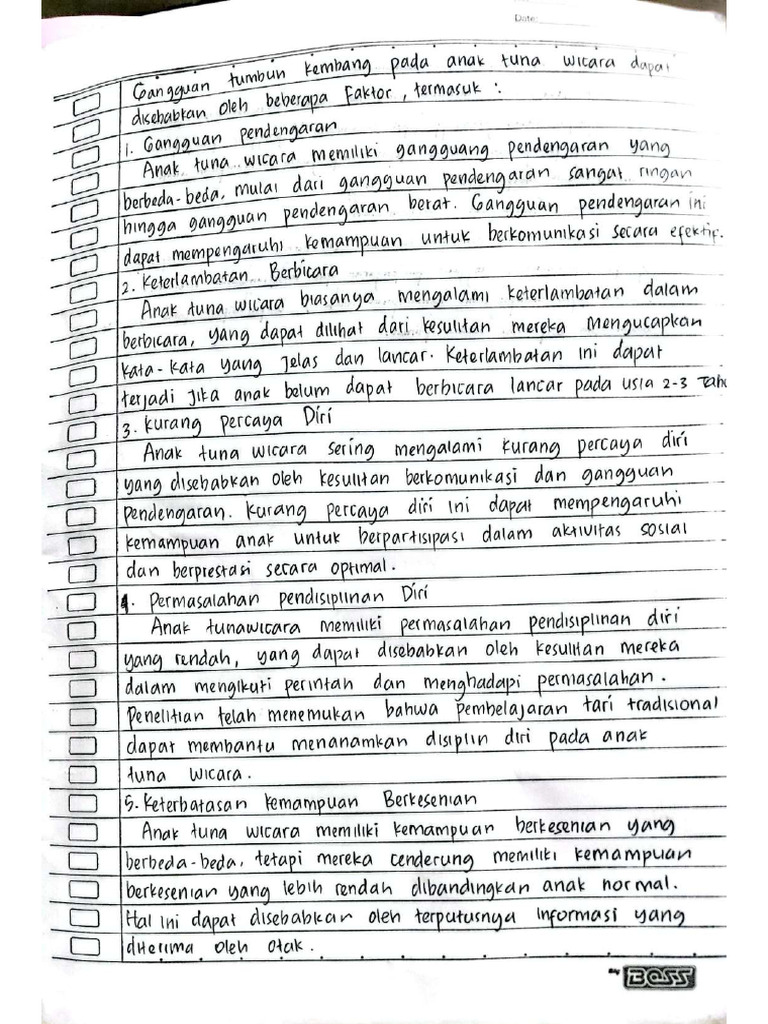 Date:
Gangguan tumbuh kembang pada anak tuna wicara dapat
disebabkan oleh beberapa Faktor, termasuk :
1. Gangguan pendengaran
Anak tuna wicara memiliki gangguang pendengaran yang
berbeda-beda, mulai dari gangguan pendengaran sangat ringan
hingga gangguan pendengaran berat. Gangguan pendengaran ini
dapat mempengaruhi kemampuan untuk berkomunikasi secara efektif.
2. Keterlambatan Berbicara
Anak tuna wicara biasanya mengalami keterlambatan dalam
berbicara, yang dapat dilihat dari kesulitan mereka mengucapkan
kata-kata yang jelas dan lancar. Keterlambatan ini dapat
terjadi jika anak belum dapat berbicara lancar pada usia 2-3 Tahu
3. Kurang percaya Diri
Anak tuna wicara sering mengalami kurang percaya diri
yang disebabkan oleh kesulitan berkomunikasi dan gangguan
pendengaran. Kurang percaya diri ini dapat mempengaruhi
kemampuan anak untuk berpartisipasi dalam aktivitas sosial
dan berprestasi secara optimal.
4. Permasalahan pendisiplinan Diri
Anak tunawicara memiliki permasalahan pendisiplinan diri
yang rendah, yang dapat disebabkan oleh kesulitan mereka
dalam mengikuti perintah dan menghadapi permasalahan.
Penelitian telah menemukan bahwa pembelajaran tari tradisional
dapat membantu menanamkan disiplin diri pada anak
tuna wicara.
5. Keterbatasan kemampuan Berkesenian
Anak tuna wicara memiliki kemampuan berkesenian yang
berbeda-beda, tetapi mereka cenderung memiliki kemampuan
berkesenian yang lebih rendah dibandingkan anak normal.
Hal ini dapat disebabkan oleh terputusnya informasi yang
diterima oleh otak.
By BOSS